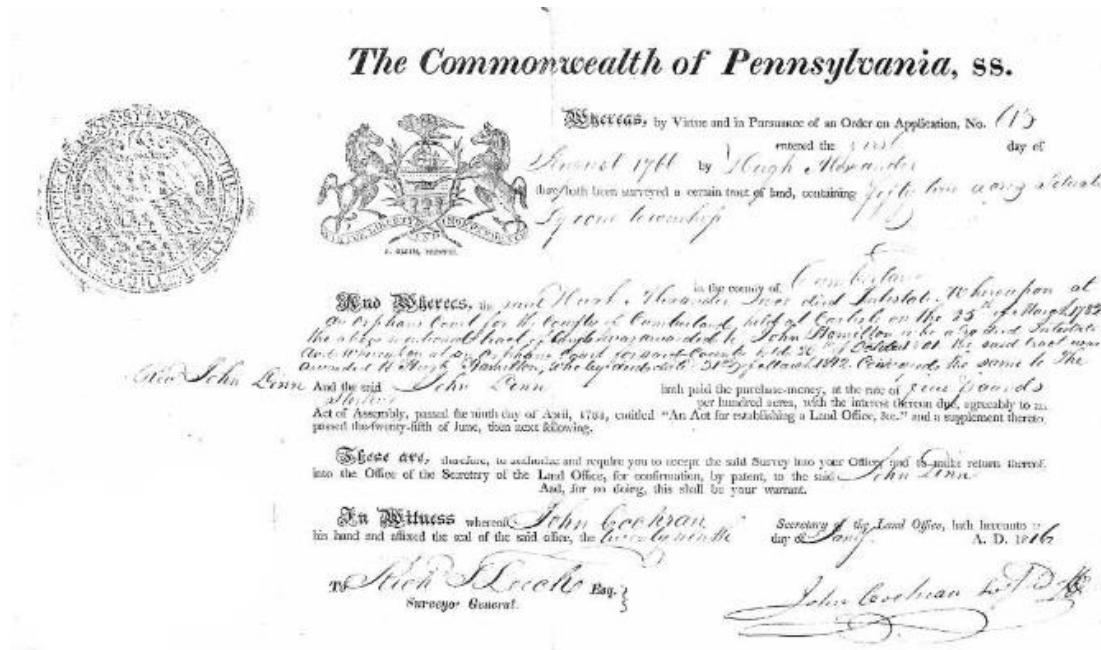 The Commonwealth of Pennsylvania, ss.
Whereas, by Virtue and in Pursuance of an Order on Application, No.
entered the first day of
August 1766 by Hugh Alexander
there hath been surveyed a certain tract of land, containing fifty two acres Situate
Tyrone township
in the county of Cumberland
And Whereas, the said Hugh Alexander died Intestate Whereupon at
an Orphans Court for the County of Cumberland, held at Carlisle on the 25th of March 1782
the above mentioned tract of was awarded to John Hamilton
And Whereupon at an Orphans Court for said County held October the said tract
awarded to Hugh Hamilton, who by deed dated 31st of March 1812 Conveyed the same to the
Rev John Linn And the said John Linn hath paid the purchase-money, at the rate of five pounds
Sterling per hundred acres, with the interest thereon due, agreeably to an
Act of Assembly, passed the ninth day of April, 1784, entitled "An Act for establishing a Land Office, &c." and a supplement thereto
passed the twenty-fifth of June, then next following.
These are, therefore, to authorize and require you to accept the said Survey into your Office, and to make return thereof
into the Office of the Secretary of the Land Office, for confirmation, by patent, to the said John Linn
And, for so doing, this shall be your warrant.
In Witness whereof John Cochran Secretary of the Land Office, hath hereunto
his hand and affixed the seal of the said office, the twenty ninth day of Jany. A. D. 1816
To Esq.
Surveyor General.
John Cochran